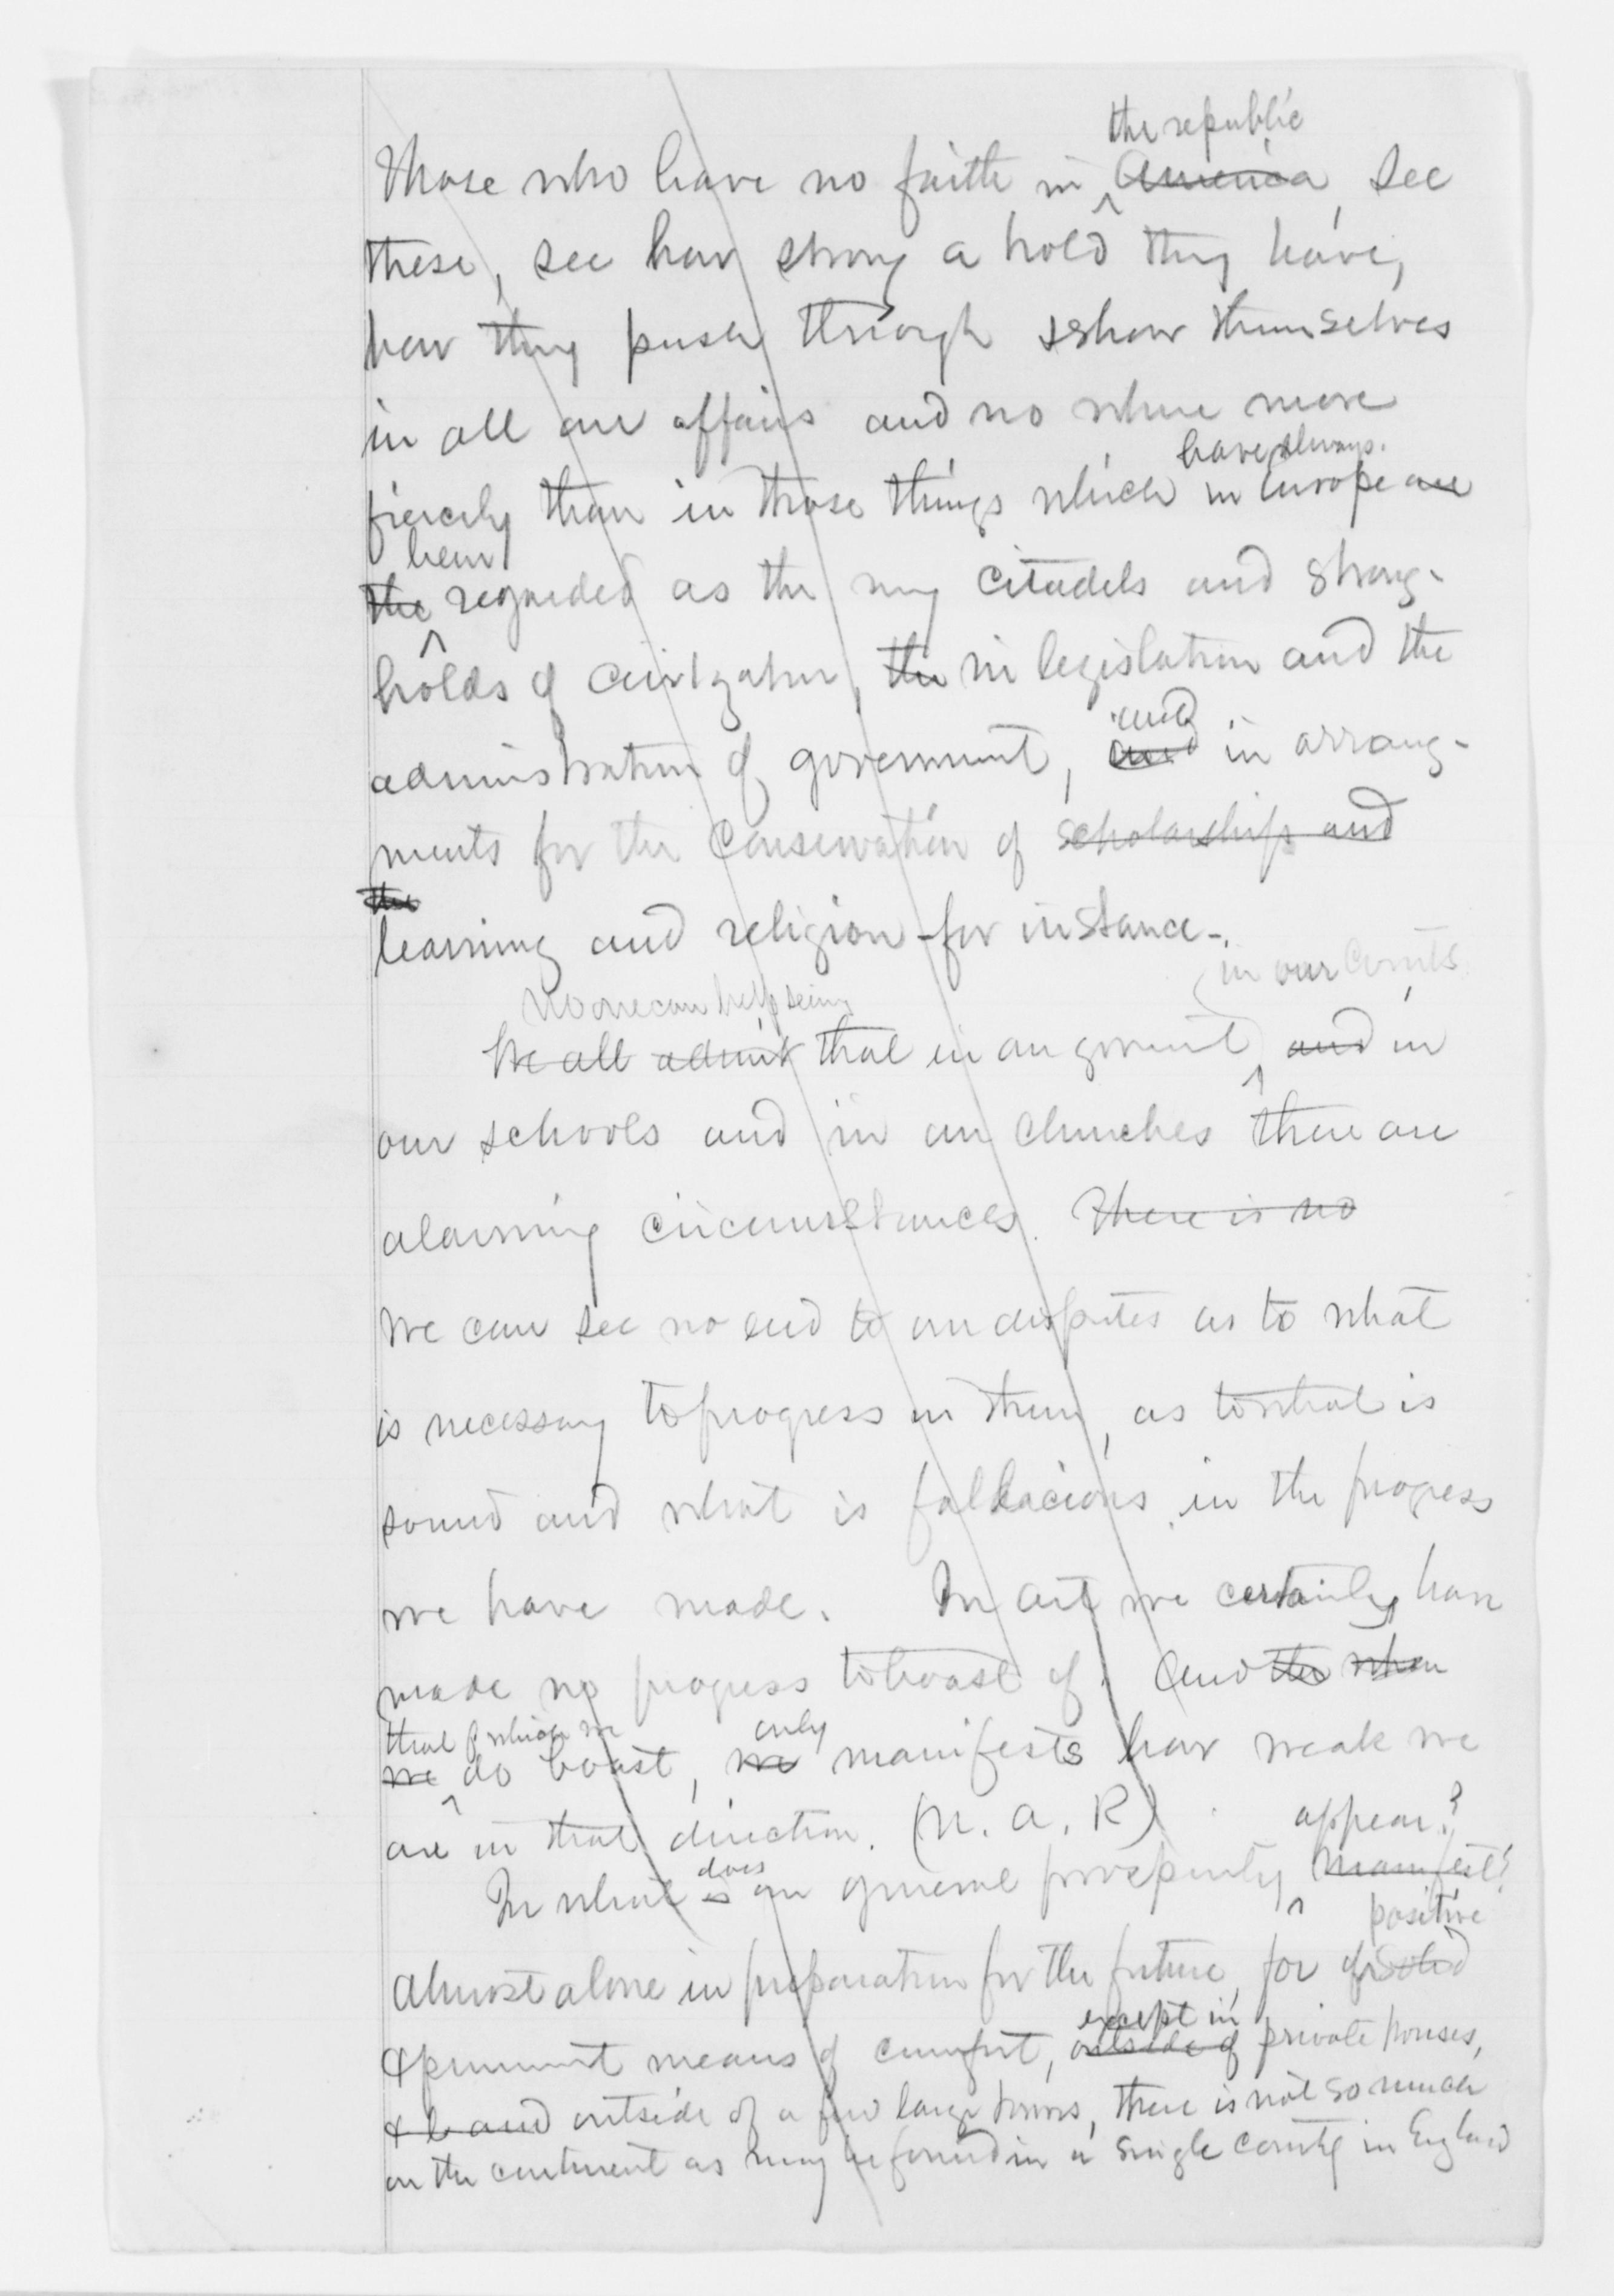 the republic
Those who have no faith in America, see
these, see how strong a hold they have,
how they push through & show themselves
in all our affairs and no where more
have always
fiercely than in those things which in Europe are
been
the regarded as the very citadels and strong-
holds of civilization, the in legislation and the
and
administration of government, and in arrang-
ments for the conservation of scholarship and
the
learning and religion - for instance -
in our courts
No one can help seeing
We all admit that in our government, and in
our schools and in our churches there are
alarming circumstances. There is no
We can see no end to our disputes as to what
is necessary to progress in them, as to what is
sound and what is fallacious in the progress
we have made. In art we certainly have
made no progress to boast of. And the when
that of which we only
we do boast, we manifests how weak we
are in that direction. (N. A. R) appear?
does
In what is our general prosperity manifest?
positive
Almost alone in preparation for the future, for of solid
except in
& permanent means of comfort, outside of private houses,
& and outside of a few large towns, there is not so much
on the continent as may be found in a single county in England